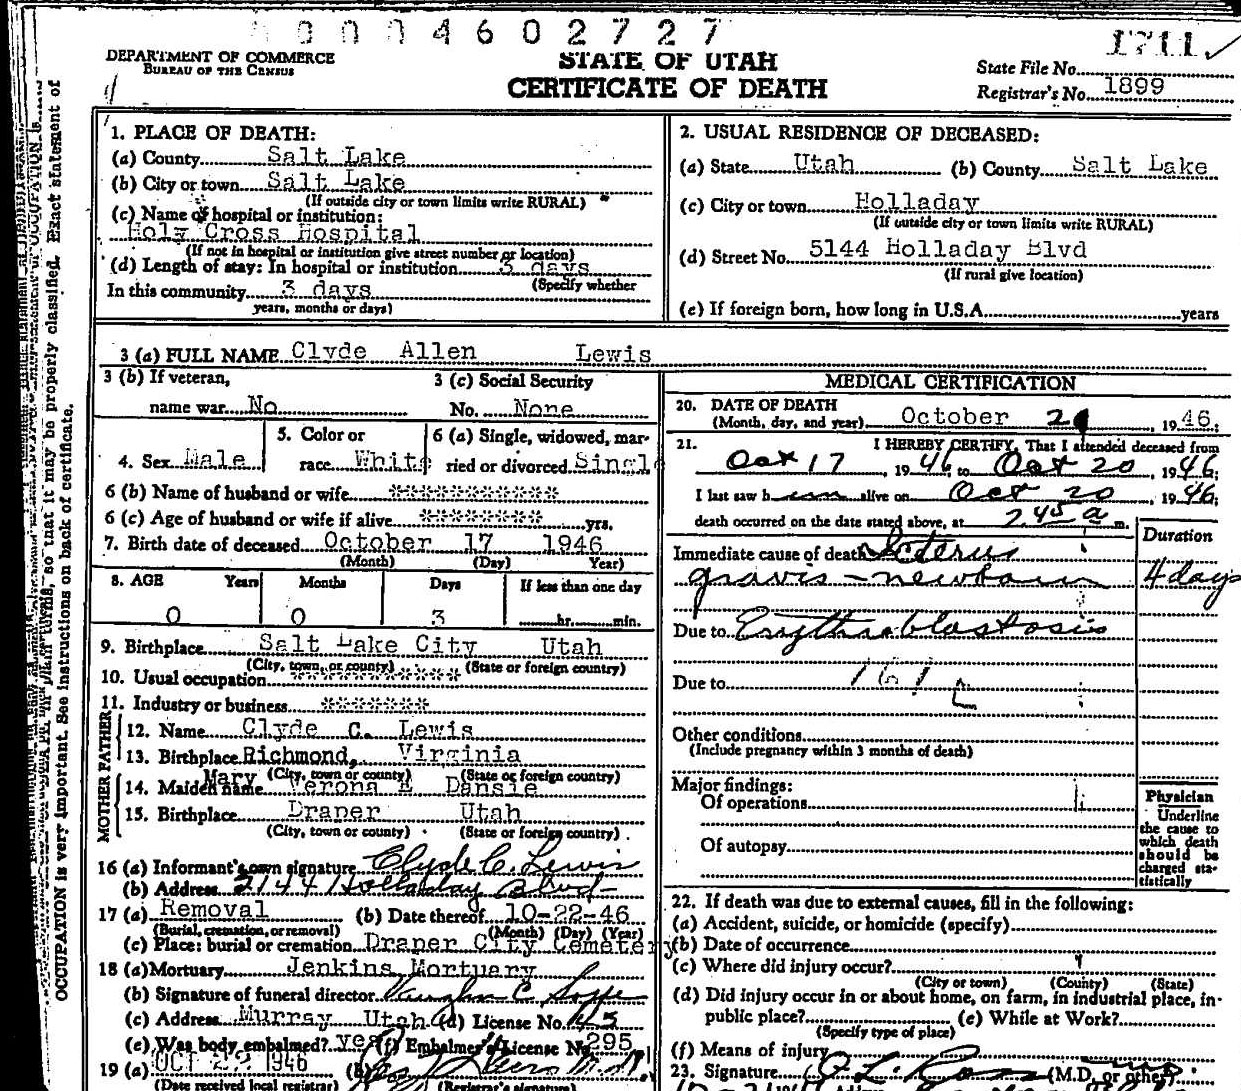 0004602727
1711
DEPARTMENT OF COMMERCE
BUREAU OF THE CENSUS
STATE OF UTAH
CERTIFICATE OF DEATH
State File No.
Registrar's No. 1899
OCCUPATION is very important. See instructions on back of certificate.
so that it may be properly classified. Exact statement of
1. PLACE OF DEATH:
(a) County Salt Lake
(b) City or town Salt Lake
(If outside city or town limits write RURAL)
(c) Name of hospital or institution:
Holy Cross Hospital
(If not in hospital or institution give street number or location)
(d) Length of stay: In hospital or institution 3 days
(Specify whether
In this community 3 days
years, months or days)
2. USUAL RESIDENCE OF DECEASED:
(a) State Utah (b) County Salt Lake
(c) City or town Holladay
(If outside city or town limits write RURAL)
(d) Street No. 5144 Holladay Blvd
(If rural give location)
(e) If foreign born, how long in U.S.A. years
3 (a) FULL NAME Clyde Allen Lewis
3 (b) If veteran, 3 (c) Social Security
name war No No. None
4. Sex Male 5. Color or race White 6 (a) Single, widowed, mar-
ried or divorced Singl
6 (b) Name of husband or wife **************
6 (c) Age of husband or wife if alive ********** yrs.
7. Birth date of deceased October 17 1946
(Month) (Day) Year)
8. AGE Years Months Days If less than one day
0 0 3 hr. min.
9. Birthplace Salt Lake City Utah
(City, town, or county) (State or foreign country)
10. Usual occupation **************
11. Industry or business *********
FATHER
12. Name Clyde C. Lewis
13. Birthplace Richmond, Virginia
(City, town or county) (State or foreign country)
MOTHER
14. Maiden name Mary Verona E Dansie
15. Birthplace Draper Utah
(City, town or county) (State or foreign country)
16 (a) Informant's own signature Clyde C. Lewis
(b) Address Holladay Blvd
17 (a) Removal (b) Date thereof 10-22-46
(Burial, cremation, or removal) (Month) (Day) (Year)
(c) Place: burial or cremation Draper City Cemetery
18 (a) Mortuary Jenkins Mortuary
(b) Signature of funeral director
(c) Address Murray Utah (d) License No.
(e) Was body embalmed? yes (f) Embalmer's License No 295
19 (a) OCT 22 1946 (b)
(Date received local registrar) (Registrar's signature)
MEDICAL CERTIFICATION
20. DATE OF DEATH
(Month, day, and year) October 2 , 1946.
21. I HEREBY CERTIFY, That I attended deceased from
Oct 17 , 1946, to Oct 20 , 1946;
I last saw him alive on Oct 20 , 1946;
death occurred on the date stated above, at 45 a m.
Duration
Immediate cause of death Icterus
gravis - newborn 4 days
Due to Erythroblastosis
Due to 161
Other conditions
(Include pregnancy within 3 months of death)
Major findings:
Of operations
Of autopsy
Physician
Underline
the cause to
which death
should be
charged sta-
tistically
22. If death was due to external causes, fill in the following:
(a) Accident, suicide, or homicide (specify)
(b) Date of occurrence
(c) Where did injury occur?
(City or town) (County) (State)
(d) Did injury occur in or about home, on farm, in industrial place, in-
public place? (e) While at Work?
(Specify type of place)
(f) Means of injury
23. Signature (M.D. or other)